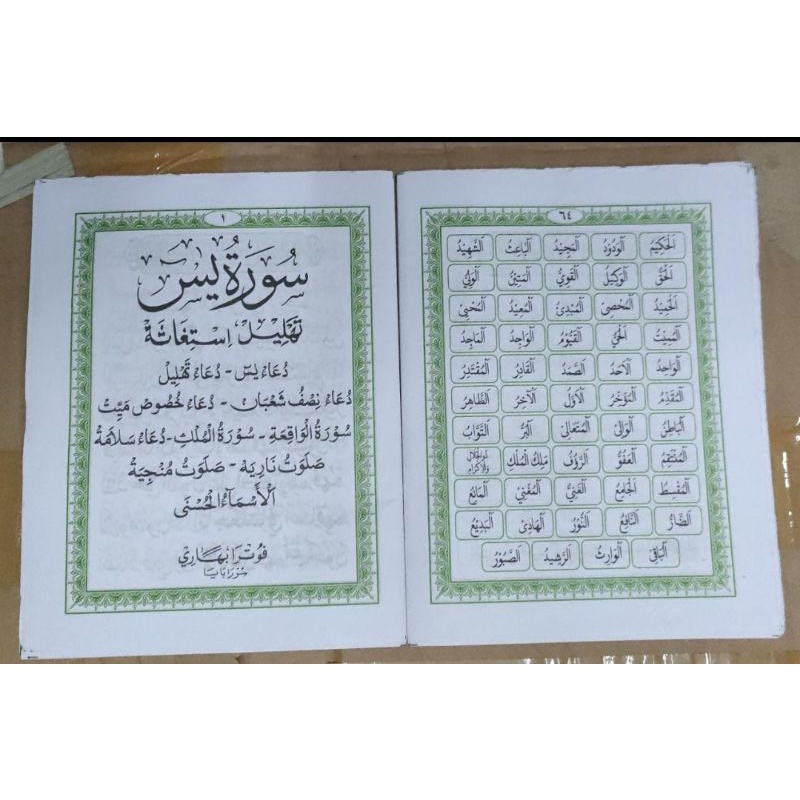 ١
سُورَةُ يٰسٓ
تَهْلِيْل اِسْتِغَاثَةْ
دُعَاءْ يٰسٓ - دُعَاءْ تَهْلِيْل
دُعَاءْ نِصْفُ شَعْبَانْ - دُعَاءْ خُصُوصْ مَيِّتْ
سُوْرَةُ الْوَاقِعَةِ - سُوْرَةُ الْمُلْكِ - دُعَاءْ سَلَامَةْ
صَلَوَتْ نَارِيَهْ - صَلَوَتْ مُنْجِيَةْ
اَلْأَسْمَآءُ الْحُسْنَى
فوترا بهاري
سورابايا
٦٤
اَلْحَكِيْمُ اَلْوَدُوْدُ اَلْمَجِيْدُ اَلْبَاعِثُ اَلشَّهِيْدُ
اَلْحَقُّ اَلْوَكِيْلُ اَلْقَوِيُّ اَلْمَتِيْنُ اَلْوَلِيُّ
اَلْحَمِيْدُ اَلْمُحْصِيْ اَلْمُبْدِئُ اَلْمُعِيْدُ اَلْمُحْيِيْ
اَلْمُمِيْتُ اَلْحَيُّ اَلْقَيُّوْمُ اَلْوَاجِدُ اَلْمَاجِدُ
اَلْوَاحِدُ اَلْاَحَدُ اَلصَّمَدُ اَلْقَادِرُ اَلْمُقْتَدِرُ
اَلْمُقَدِّمُ اَلْمُؤَخِّرُ اَلْاَوَّلُ اَلْاٰخِرُ اَلظَّاهِرُ
اَلْبَاطِنُ اَلْوَالِيْ اَلْمُتَعَالِيْ اَلْبَرُّ اَلتَّوَّابُ
اَلْمُنْتَقِمُ اَلْعَفُوُّ اَلرَّؤُفُ مَالِكُ الْمُلْكِ ذُو الْجَلَالِ وَالْاِكْرَامِ
اَلْمُقْسِطُ اَلْجَامِعُ اَلْغَنِيُّ اَلْمُغْنِيْ اَلْمَانِعُ
اَلضَّارُّ اَلنَّافِعُ اَلنُّوْرُ اَلْهَادِيْ اَلْبَدِيْعُ
اَلْبَاقِيْ اَلْوَارِثُ اَلرَّشِيْدُ اَلصَّبُوْرُ